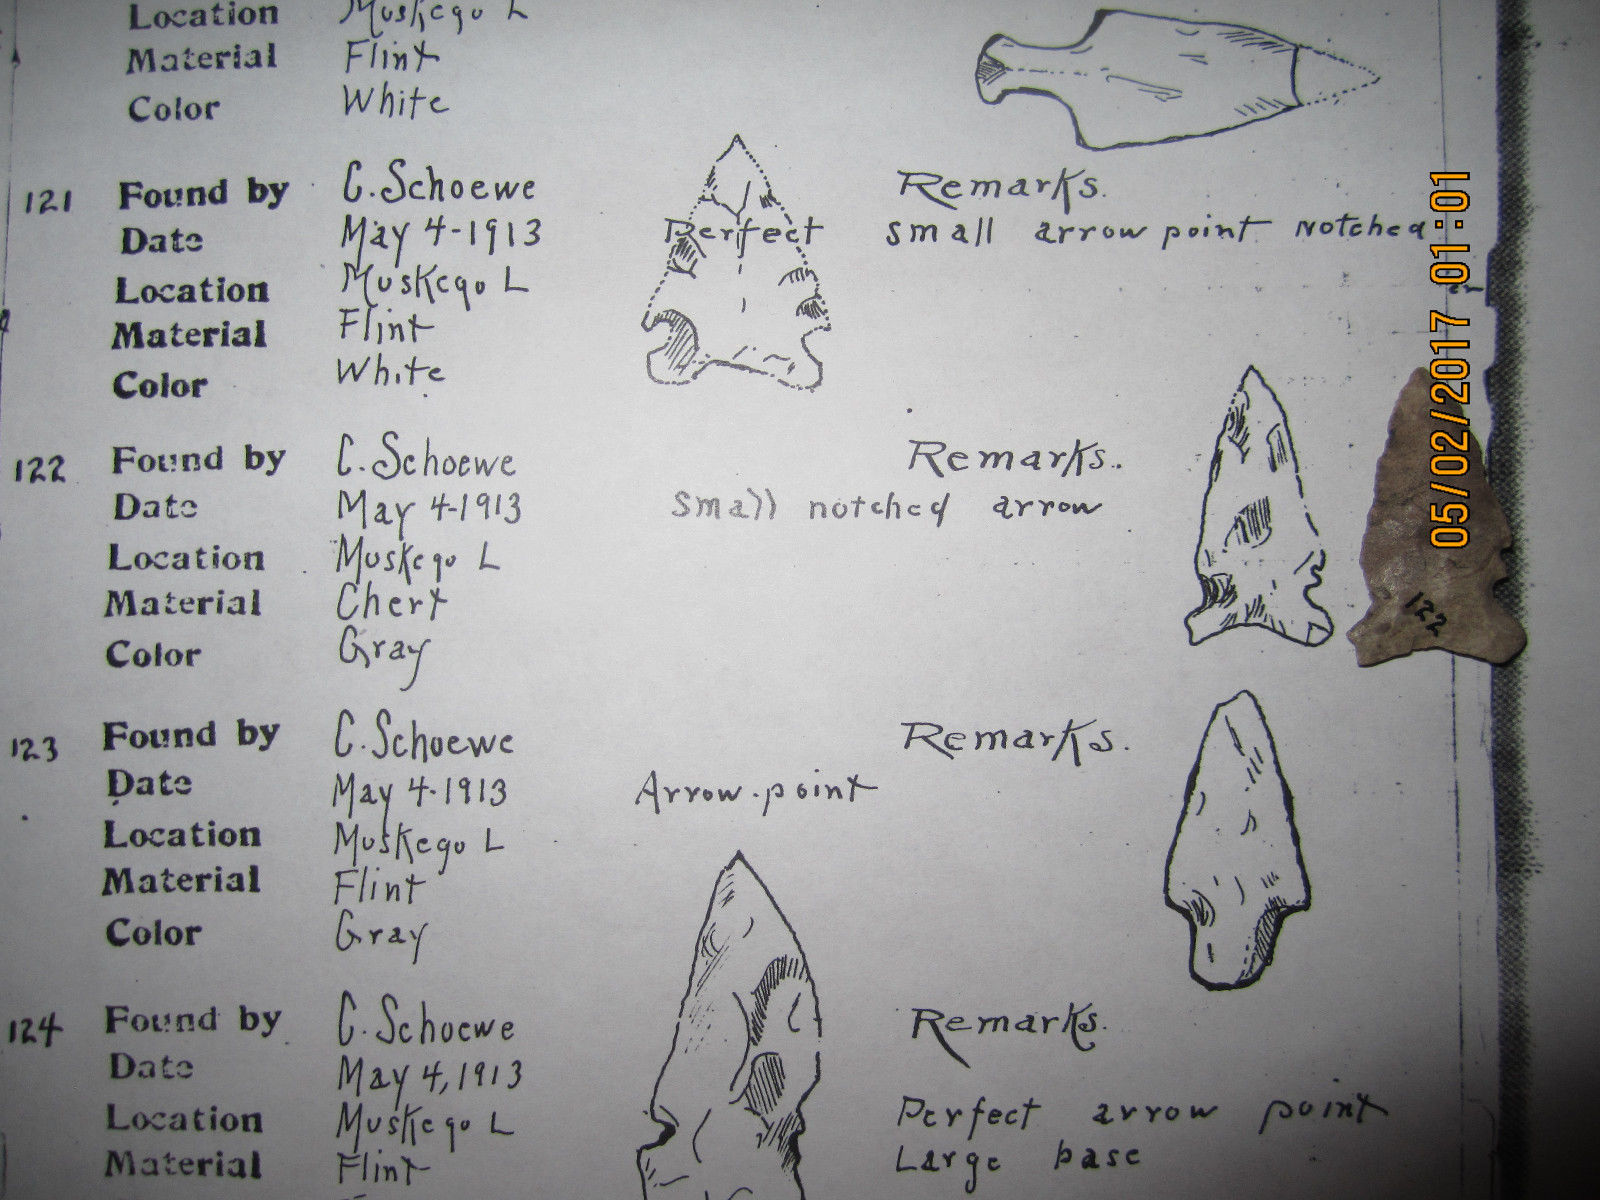 Location Muskego L
Material Flint
Color White
121 Found by C. Schoewe Remarks.
Date May 4-1913 Perfect small arrow point notched
Location Muskego L
Material Flint
Color White
122 Found by C. Schoewe Remarks.
Date May 4-1913 small notched arrow
Location Muskego L
Material Chert
Color Gray
122
123 Found by C. Schoewe Remarks.
Date May 4-1913 Arrow-point
Location Muskego L
Material Flint
Color Gray
124 Found by C. Schoewe Remarks.
Date May 4, 1913
Location Muskego L Perfect arrow point
Material Flint Large base
05/02/2017 01:01